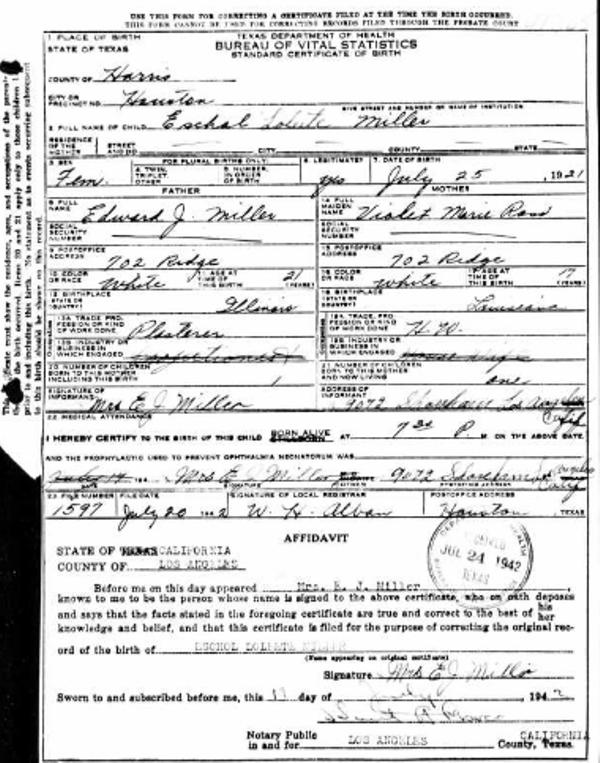 USE THIS FORM FOR CORRECTING A CERTIFICATE FILED AT THE TIME THE BIRTH OCCURRED.
THIS FORM CANNOT BE USED FOR CORRECTING RECORDS FILED THROUGH THE PROBATE COURT
1 PLACE OF BIRTH TEXAS DEPARTMENT OF HEALTH
STATE OF TEXAS BUREAU OF VITAL STATISTICS
STANDARD CERTIFICATE OF BIRTH
COUNTY OF Harris
CITY OR PRECINCT NO. Houston
GIVE STREET AND NUMBER OR NAME OF INSTITUTION
2 FULL NAME OF CHILD Eschol Miller
RESIDENCE OF THE MOTHER STREET AND NO. CITY COUNTY STATE
3 SEX FOR PLURAL BIRTHS ONLY: 4 TWIN, TRIPLET, OTHER 5 NUMBER, IN ORDER OF BIRTH 6 LEGITIMATE? 7 DATE OF BIRTH
Fem. yes July 25, 1921
FATHER MOTHER
8 FULL NAME Edward J. Miller 14 FULL MAIDEN NAME Violet Marie
SOCIAL SECURITY NUMBER SOCIAL SECURITY NUMBER
9 POSTOFFICE ADDRESS 702 Ridge 15 POSTOFFICE ADDRESS 702 Ridge
10 COLOR OR RACE White 11 AGE AT TIME OF THIS BIRTH 21 (YEARS) 16 COLOR OR RACE White 17 AGE AT TIME OF THIS BIRTH 17 (YEARS)
12 BIRTHPLACE STATE OR COUNTRY Illinois 18 BIRTHPLACE (STATE OR COUNTRY) Louisiana
13A TRADE, PROFESSION OR KIND OF WORK DONE Plasterer 19A TRADE, PROFESSION OR KIND OF WORK DONE H.W.
13B INDUSTRY OR BUSINESS IN WHICH ENGAGED 19B INDUSTRY OR BUSINESS IN WHICH ENGAGED House Wife
20 NUMBER OF CHILDREN BORN TO THIS MOTHER INCLUDING THIS BIRTH 1 21 NUMBER OF CHILDREN BORN TO THIS MOTHER AND NOW LIVING one
SIGNATURE OF INFORMANT Mrs E J Miller ADDRESS OF INFORMANT 9072 Shoreham Los Angeles Calif
22 MEDICAL ATTENDANCE
I HEREBY CERTIFY TO THE BIRTH OF THIS CHILD BORN ALIVE STILLBORN AT 7 30 P. M ON THE ABOVE DATE.
AND THE PROPHYLACTIC USED TO PREVENT OPHTHALMIA NEONATORUM WAS
July 17 Mrs E J Miller 9072 Shoreham Los Angeles Calif
DATE SIGNATURE POSTOFFICE ADDRESS
23 FILE NUMBER FILE DATE SIGNATURE OF LOCAL REGISTRAR POSTOFFICE ADDRESS
1597 July 20 1942 W. H. Alban Houston, TEXAS
AFFIDAVIT
STATE OF TEXAS CALIFORNIA
COUNTY OF LOS ANGELES
RECEIVED JUL 24 1942 TEXAS
Before me on this day appeared Mrs. E. J. Miller,
known to me to be the person whose name is signed to the above certificate, who on oath deposes
and says that the facts stated in the foregoing certificate are true and correct to the best of his her
knowledge and belief, and that this certificate is filed for the purpose of correcting the original rec-
ord of the birth of ESCHOL MILLER
(Name appearing on original certificate)
Signature Mrs E J Miller
Sworn to and subscribed before me, this 17 day of July, 1942
Notary Public
in and for LOS ANGELES CALIFORNIA County, Texas.